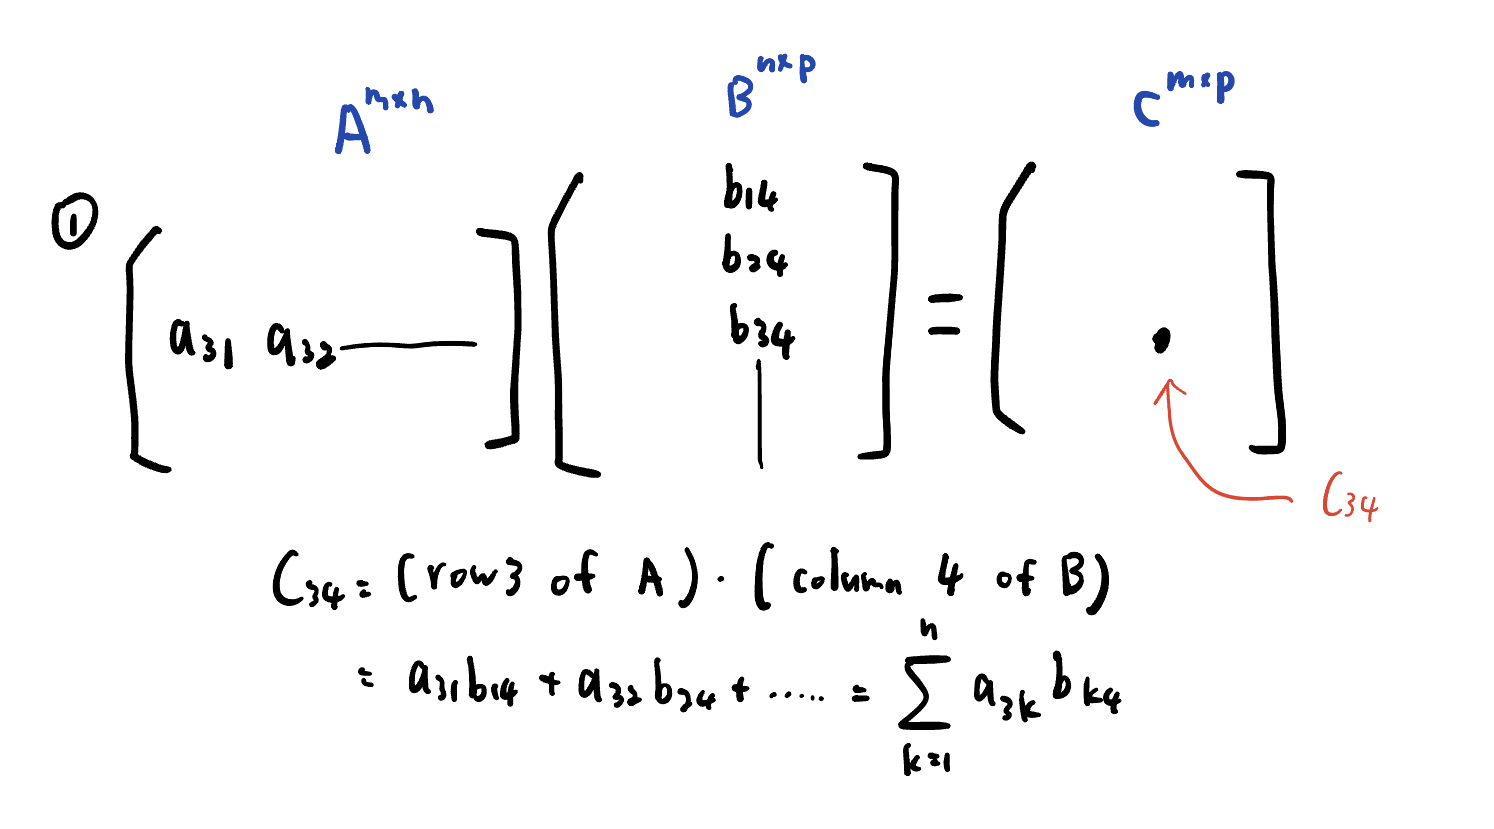 A^{m×n} B^{n×p} C^{m×p}
①
b14
b24
a31 a32 b34 =
C34
C34 = (row 3 of A) · (column 4 of B)
= a31b14 + a32b24 + ..... = \sum_{k=1}^{n} a_{3k} b_{k4}